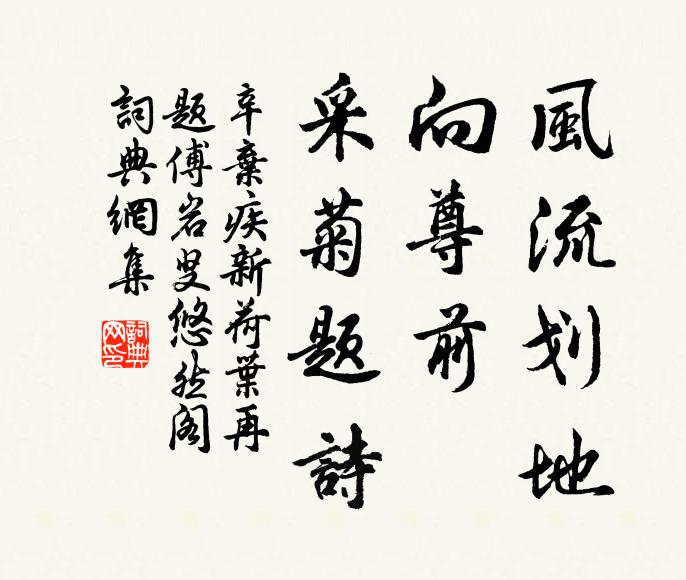 風流划地
向尊前
采菊题詩
辛棄疾新荷葉再
题傅岩叟悠然阁
詞典網集
詞典網印